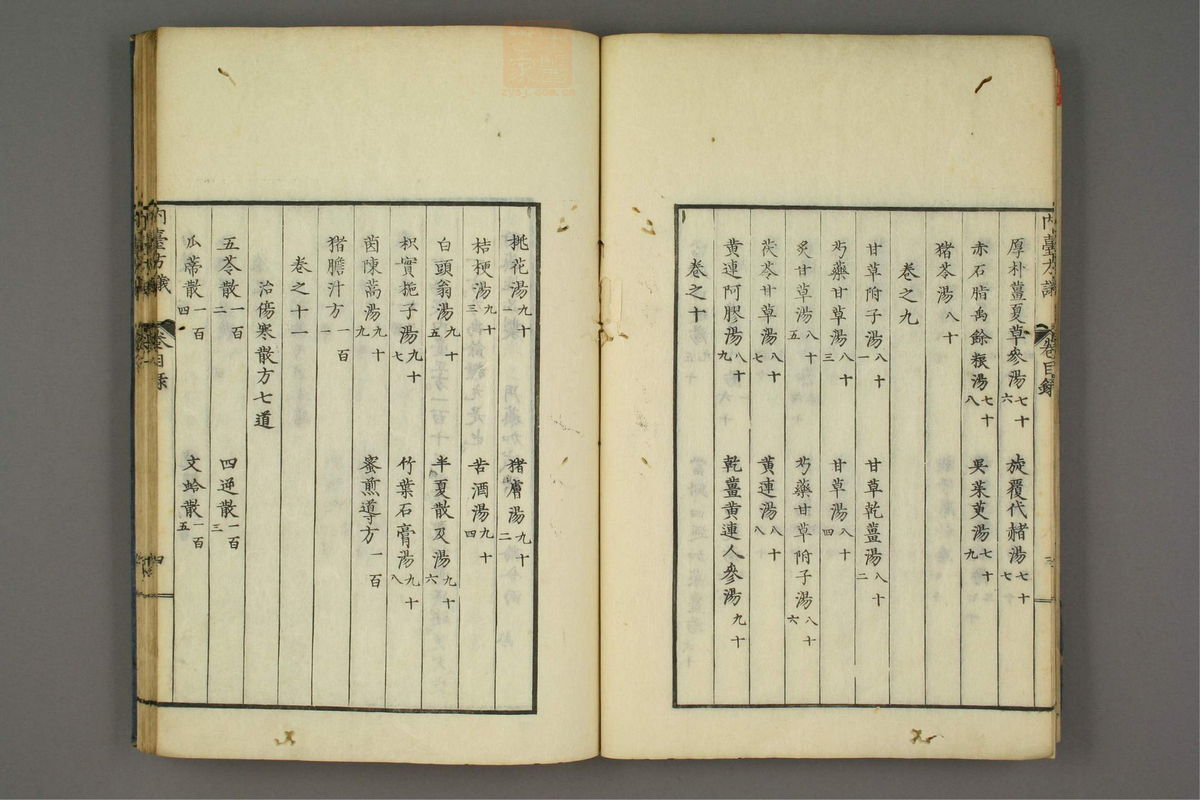 內臺方議 卷目錄 三
厚朴薑夏草參湯七十六 旋覆代赭湯七十七
赤石脂禹餘粮湯七十八 吳茱萸湯七十九
猪苓湯八十
卷之九
甘草附子湯八十一 甘草乾薑湯八十二
芍藥甘草湯八十三 甘草湯八十四
炙甘草湯八十五 芍藥甘草附子湯八十六
茯苓甘草湯八十七 黃連湯八十八
黃連阿膠湯八十九 乾薑黃連人參湯九十
卷之十
桃花湯九十一 猪膚湯九十二
桔梗湯九十三 苦酒湯九十四
白頭翁湯九十五 半夏散及湯九十六
枳實梔子湯九十七 竹葉石膏湯九十八
茵陳蒿湯九十九 蜜煎導方一百
猪膽汁方一百一
卷之十一
治傷寒散方七道
五苓散一百二 四逆散一百三
瓜蒂散一百四 文蛤散一百五
內臺方議 卷目錄 四